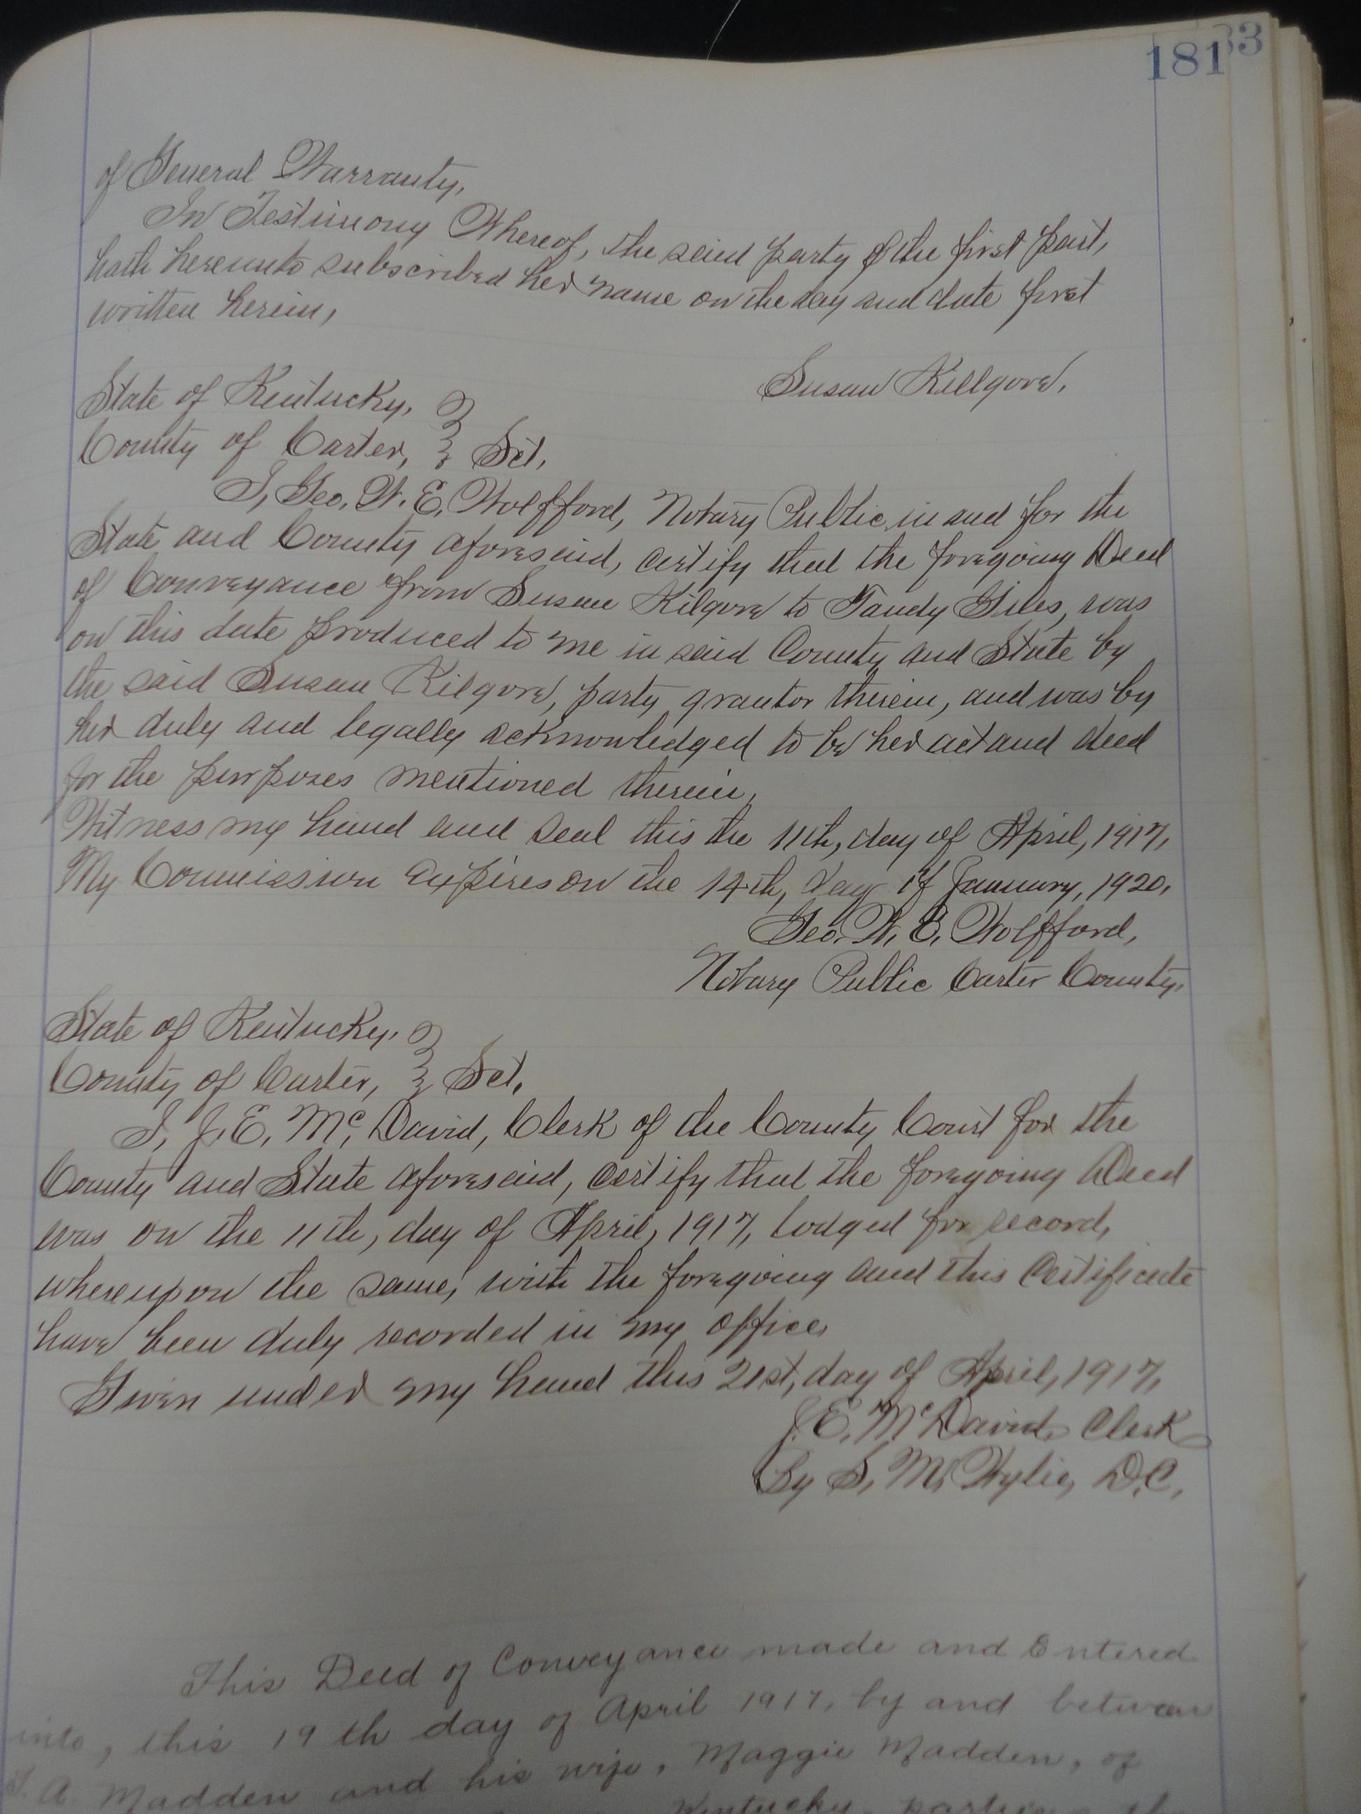 181
33
of General Warranty,
In Testimony Whereof, the said party of the first part,
hath hereunto subscribed her name on the day and date first
written herein,
Susan Killgore,
State of Kentucky,
County of Carter, } Sct,
I, Geo. W. E. Wolfford, Notary Public in and for the
State and County aforesaid, certify that the foregoing Deed
of Conveyance from Susan Kilgore to Tandy Giles, was
on this date produced to me in said County and State by
the said Susan Kilgore, party grantor therein, and was by
her duly and legally acknowledged to be her act and deed
for the purposes mentioned therein,
Witness my hand and seal this the 11th, day of April, 1917,
My Commission expires on the 14th, day of January, 1920,
Geo. W. E. Wolfford,
Notary Public Carter County,
State of Kentucky,
County of Carter, } Sct,
I, J. E. McDavid, Clerk of the County Court for the
County and State aforesaid, certify that the foregoing Deed
was on the 11th, day of April, 1917, lodged for record,
whereupon the same, with the foregoing and this certificate
have been duly recorded in my office,
Given under my hand this 21st, day of April, 1917,
J. E. McDavid, Clerk
By S. M. Wylie, D.C.,
This Deed of Conveyance made and Entered
into, this 19th day of April 1917, by and between
A. Madden and his wife, Maggie Madden, of
Kentucky, parties